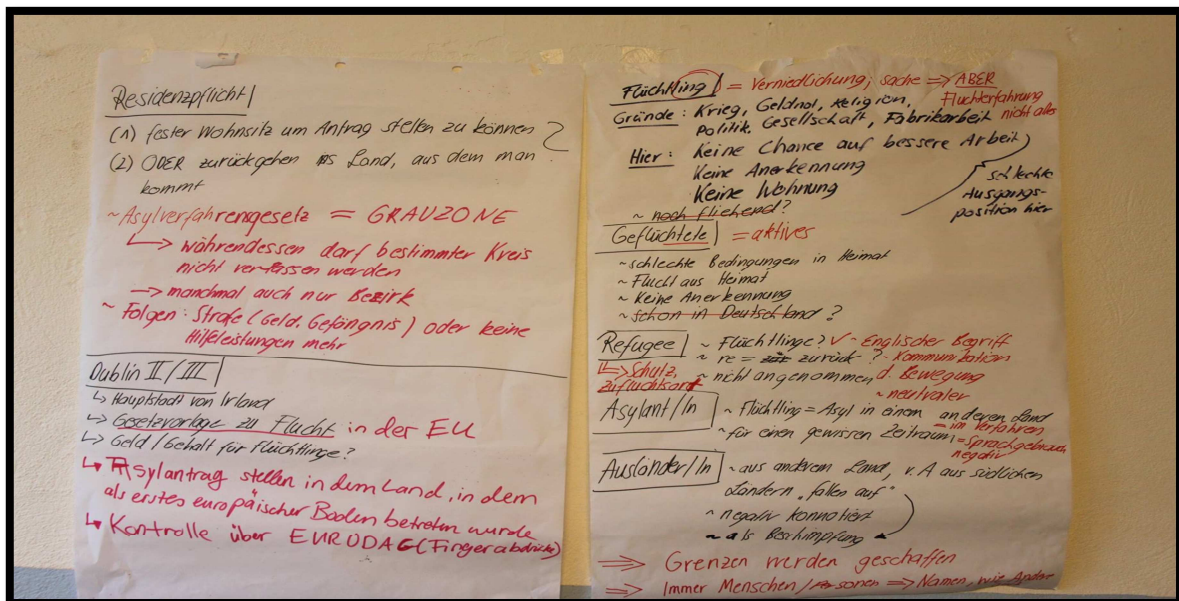 Residenzpflicht
(1) fester Wohnsitz um Antrag stellen zu können
(2) ODER zurückgehen ins Land, aus dem man
kommt
?
~ Asylverfahrengesetz = GRAUZONE
↳ währendessen darf bestimmter Kreis
nicht verlassen werden
→ manchmal auch nur Bezirk
~ Folgen: Strafe (Geld, Gefängnis) oder keine
Hilfeleistungen mehr
Dublin II / III
↳ Hauptstadt von Irland
↳ Gesetzvorlage zu Flucht in der EU
↳ Geld / Gehalt für Flüchtlinge?
↳ Asylantrag stellen in dem Land, in dem
als erstes europäischer Boden betreten wurde
↳ Kontrolle über EURODAC (Fingerabdrücke)
Flüchtling = Verniedlichung; sache ⇒ ABER
Fluchterfahrung
nicht alles
Gründe: Krieg, Geldnot, Religion,
Politik, Gesellschaft, Fabrikarbeit
Hier: Keine Chance auf bessere Arbeit
Keine Anerkennung
Keine Wohnung
schlechte
Ausgangs-
position hier
~ noch fliehend?
Geflüchtete = aktives
~ schlechte Bedingungen in Heimat
~ Flucht aus Heimat
~ Keine Anerkennung
~ schon in Deutschland?
Refugee ~ Flüchtlinge? ✓ - Englischer Begriff
~ re = zurück? - Kommunikation
↳ Schutz, ~ nicht angenommen d. Bewegung
zufluchtsort ~ neutraler
Asylant/In ~ Flüchtling = Asyl in einem anderen Land
= im Verfahren
~ für einen gewissen Zeitraum = Sprachgebrauch
negativ
Ausländer/In ~ aus anderem Land, v. A aus südlichen
Ländern „fallen auf“
~ negativ konnotiert
~ als Beschimpfung
⇒ Grenzen werden geschaffen
⇒ Immer Menschen / Personen ⇒ Namen, wie Andere